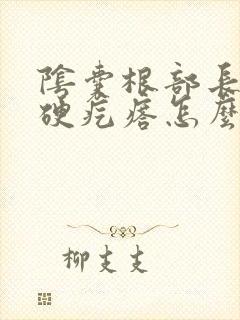 陰囊根部長
硬疙瘩怎麼
柳支支